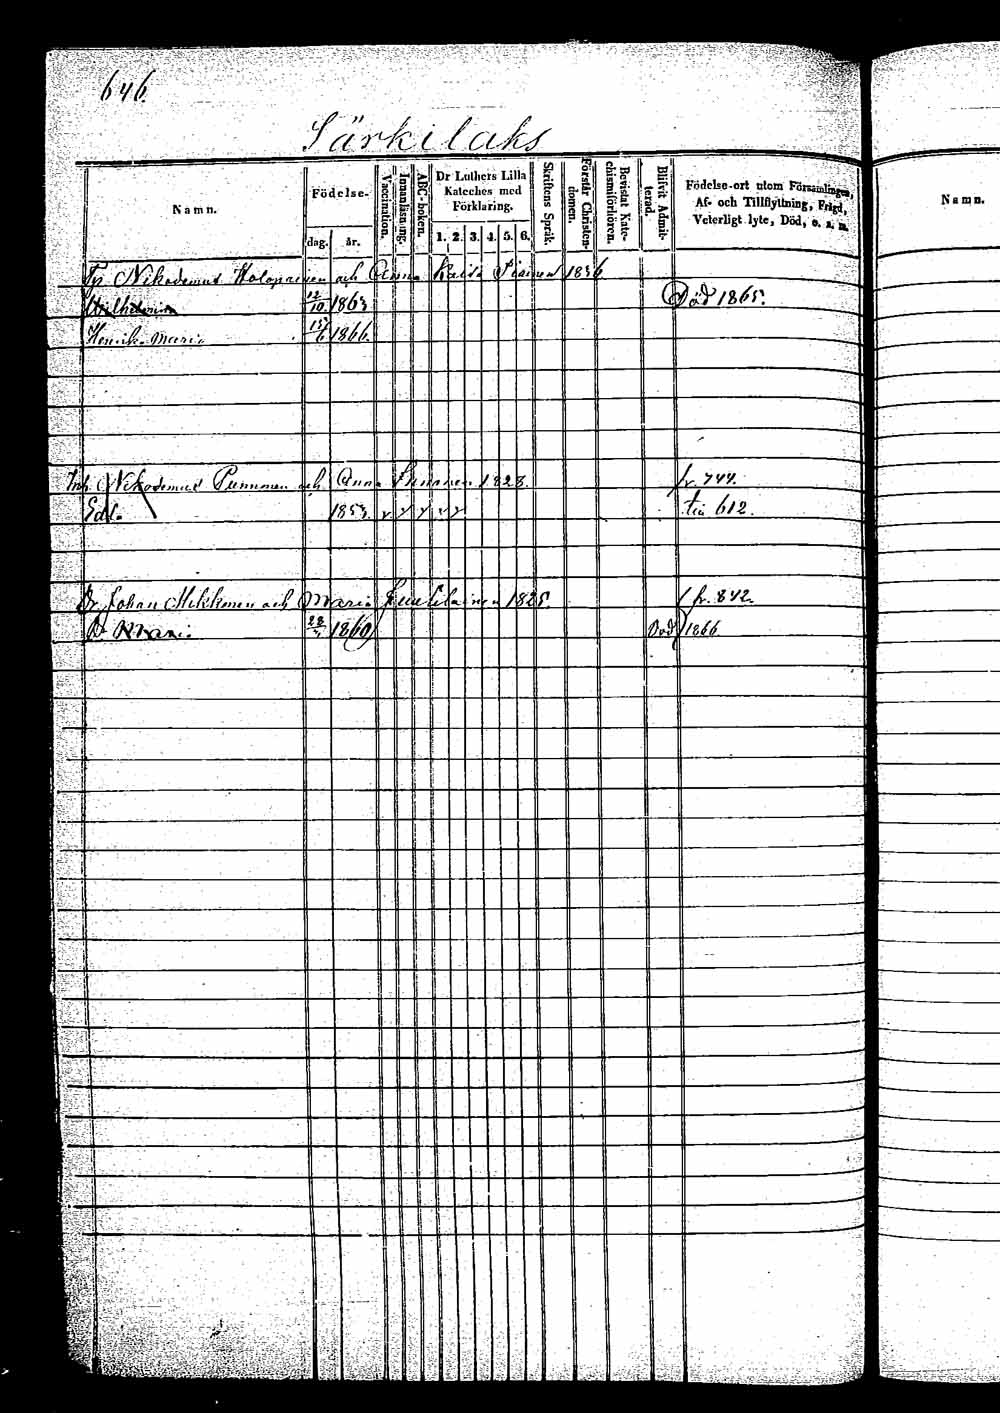 646.
Särkilaks
Namn.
Födelse-
dag. år.
Vaccination.
Innanläsning.
ABC-boken.
Dr Luthers Lilla Kateches med Förklaring.
1. 2. 3. 4. 5. 6.
Skriftens Språk.
Förstår Christendomen.
Bevistat Katechismiförhören.
Blifvit Admitterad.
Födelse-ort utom Församlingen,
Af- och Tillflyttning, Frägd,
Veterligt lyte, Död, o. s. m.
Namn.
Nikodemus Holopainen och Anna Kaisa Piainen 1836
Wilhelmina 12/10 1863 Död 1865.
Henrik 15/6 1866.
Inh. Nikodemus Punnonen och Anna 1828. fr. 744.
Edl. 1853. till 612.
Johan Mikkonen och Maria 1825. fr. 842.
Maria 1860 Död 1866